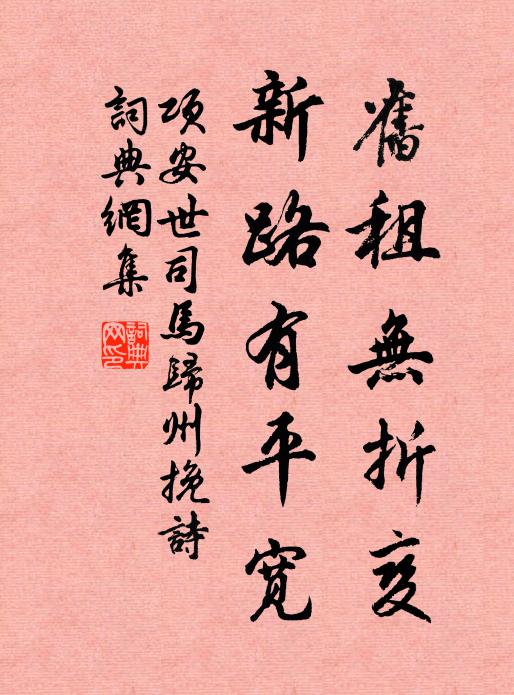 舊租無折变
新路有平寬
項安世司馬歸州挽詩
詞典網集
詞典网印